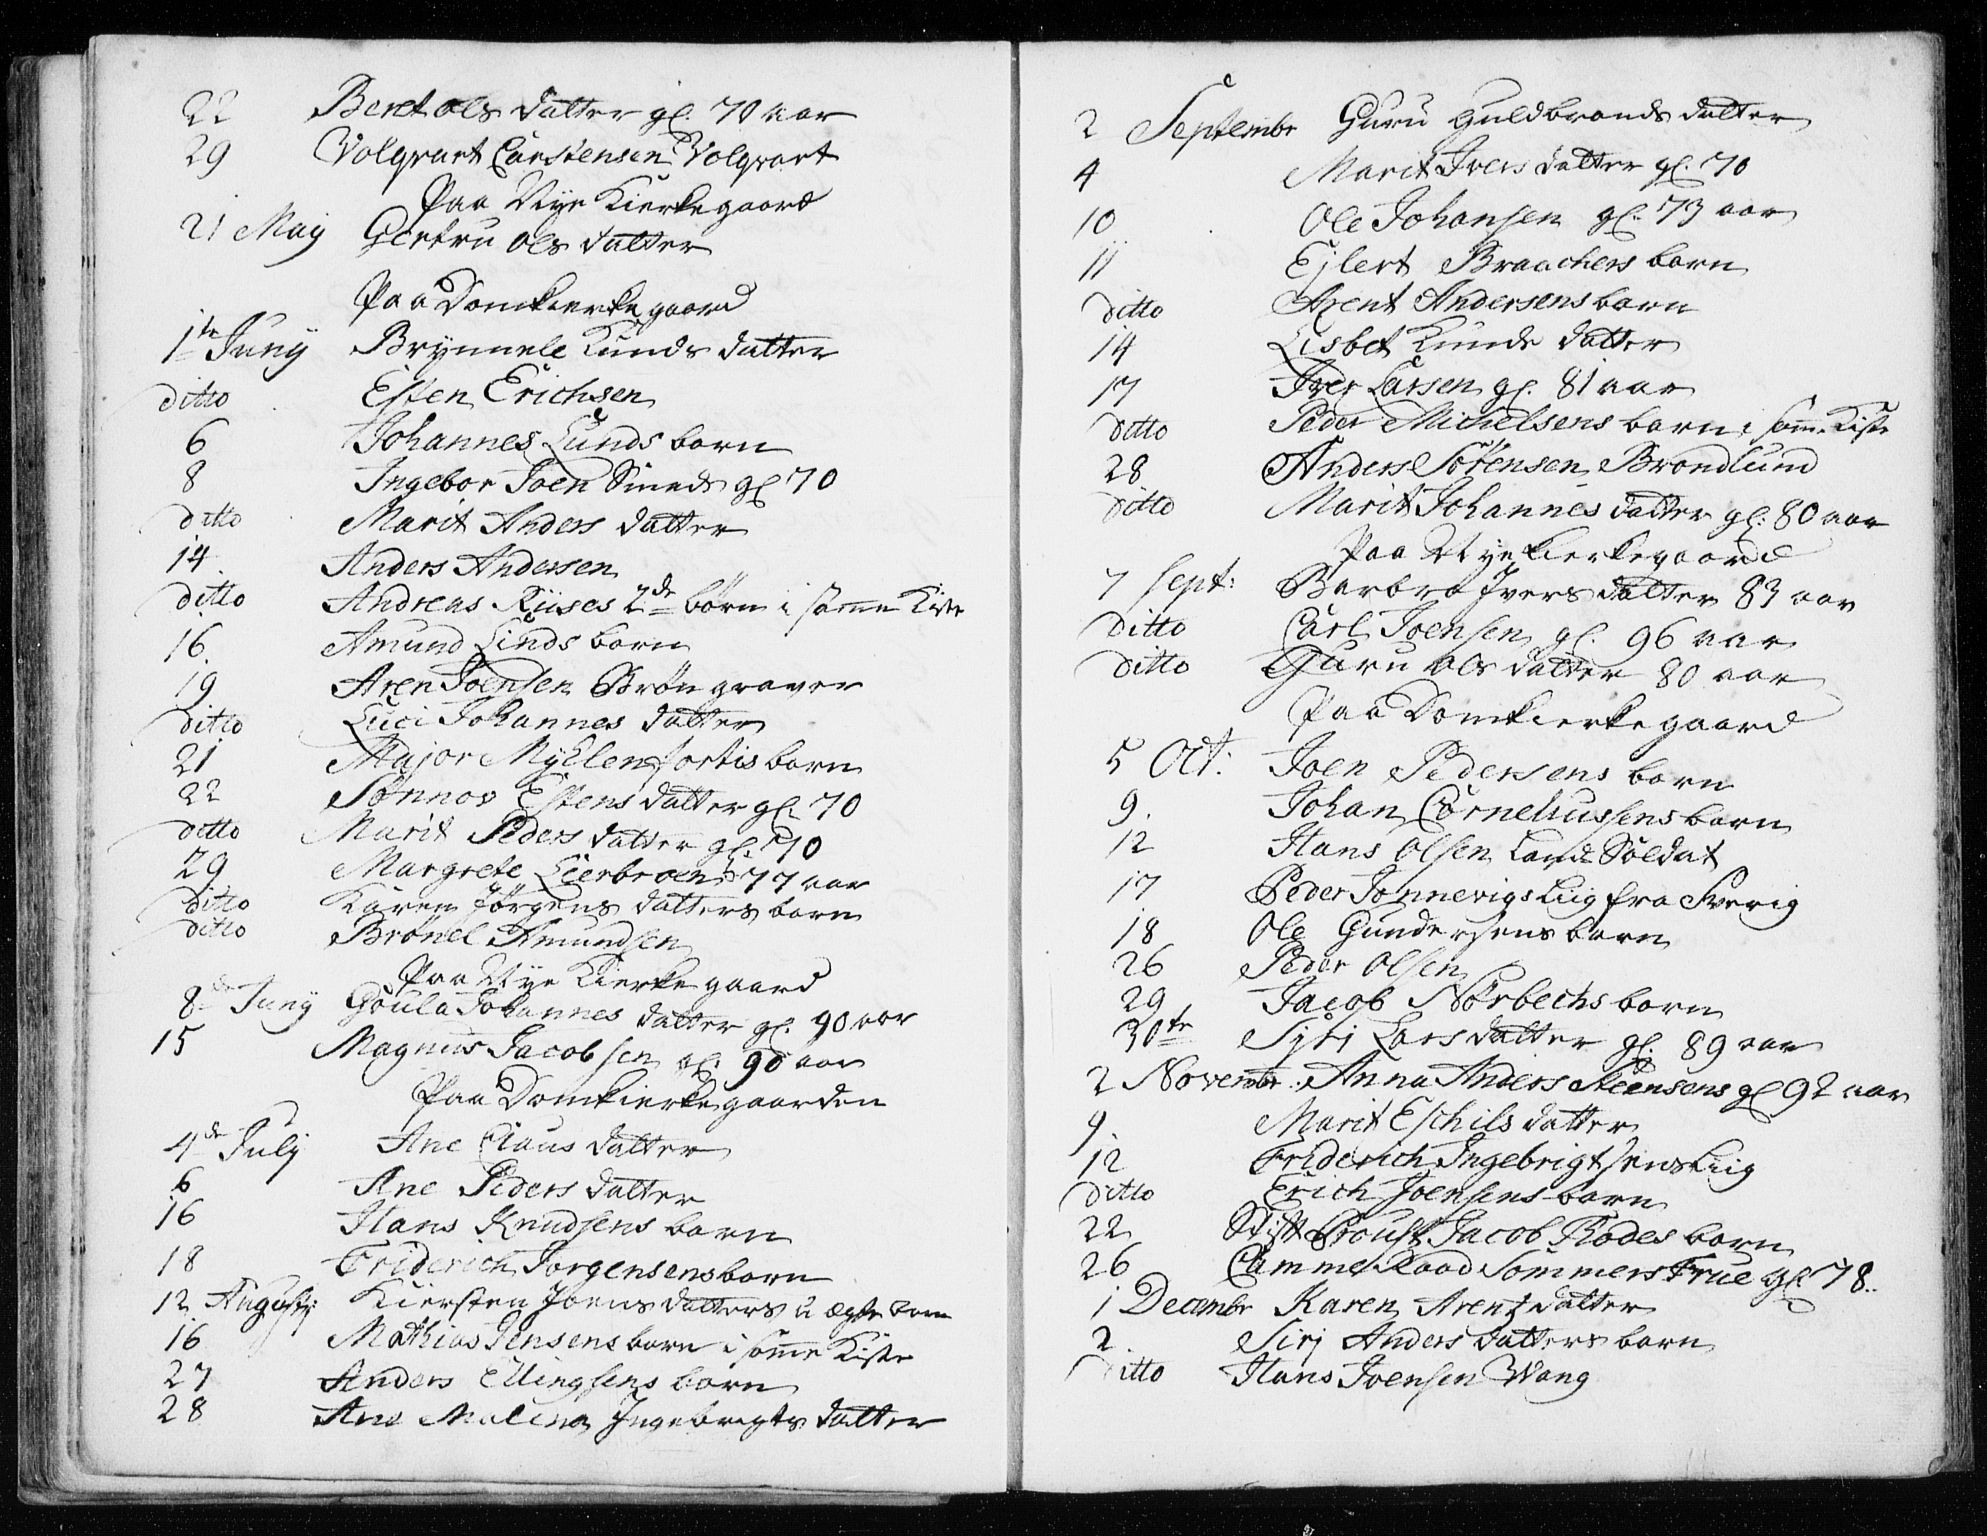 22 Beret ols datter gl. 70 aar
29 Volqvart Carstensen Volqvart
Paa Nye Kierkegaard
21 May Gertru ols datter
Paa Domkierkegaard
1te Juny Brynnele Kunds datter
ditto Esten Erichsen
6 Johannes Lunds barn
8 Ingebor Joen Smeds gl 70
ditto Marit Anders datter
14. Anders Andersen
ditto Andreas Riises 2de børn i samme Kiste
16. Amund Linds barn
19 Aren Joensen Brøn graver
ditto Luci Johannes datter
21 Major Myhlenfortis barn
22 Sønnov Estens datter gl. 70
ditto Marit Peders datter gl: 70
29 Margrete Leerbroens 77 aar
ditto Karen Jørgens datters barn
ditto Brønel Amundsen
Paa Nye Kierkegaard
8de Juny Goula Johannes datter gl. 90 aar
15 Magnus Jacobsen gl: 90 aar
Paa Domkierkegaarden
4de July Ane Claus datter
6 Ane Peders datter
16 Hans Knudsens barn
18 Friderich Jorgensens barn
12 Augusti Kiersten Joens datters u ægte barn
16 Mathias Jensens barn i samme Kiste
27 Anders Ellingsens barn
28 Ane Malena Ingebrigts datter
2 Septembr Guru Guldbrands datter
4 Marit Ivers datter gl. 70
10 Ole Johansen gl. 73 aar
11 Ejlert Braachers barn
ditto Arent Andersens barn
14 Lisbet Kunds datter
17 Iver Larsen gl. 81 aar
ditto Peder Michelsens barn i samme Kiste
28 Anders Sørensen Brøndlund
ditto Marit Johannes datter gl: 80 aar
Paa Nye kierkegaard
7 Sept: Barbra Ivers datter 83 aar
ditto Carl Joensen gl. 96 aar
ditto Guru ols datter 80 aar
Paa Domkierkegaard
5 Oct: Joen Pedersens barn
9. Johan Cornelius sens barn
12 Hans Olsen Land Soldat
17 Peder Jonnevigs Liig fra Sverig
18 Ole Gundersens barn
26 Peder Olsen
29 Jacob Nørbechs barn
30te Syrj Lars datter gl. 89 aar
2 Novembr: Anna Anders Steensens gl 92 aar
9. Marit Eschils datter
12 Friderich Ingebrigtsens Liig
ditto Erich Joensens barn
22 Stift Proust Jacob Rodes barn
26 Camme Raad Sommers Frue gl 78.
1 Decembr Karen Arentz datter
2 Sirj Anders datters barn
ditto Hans Joensen Wang